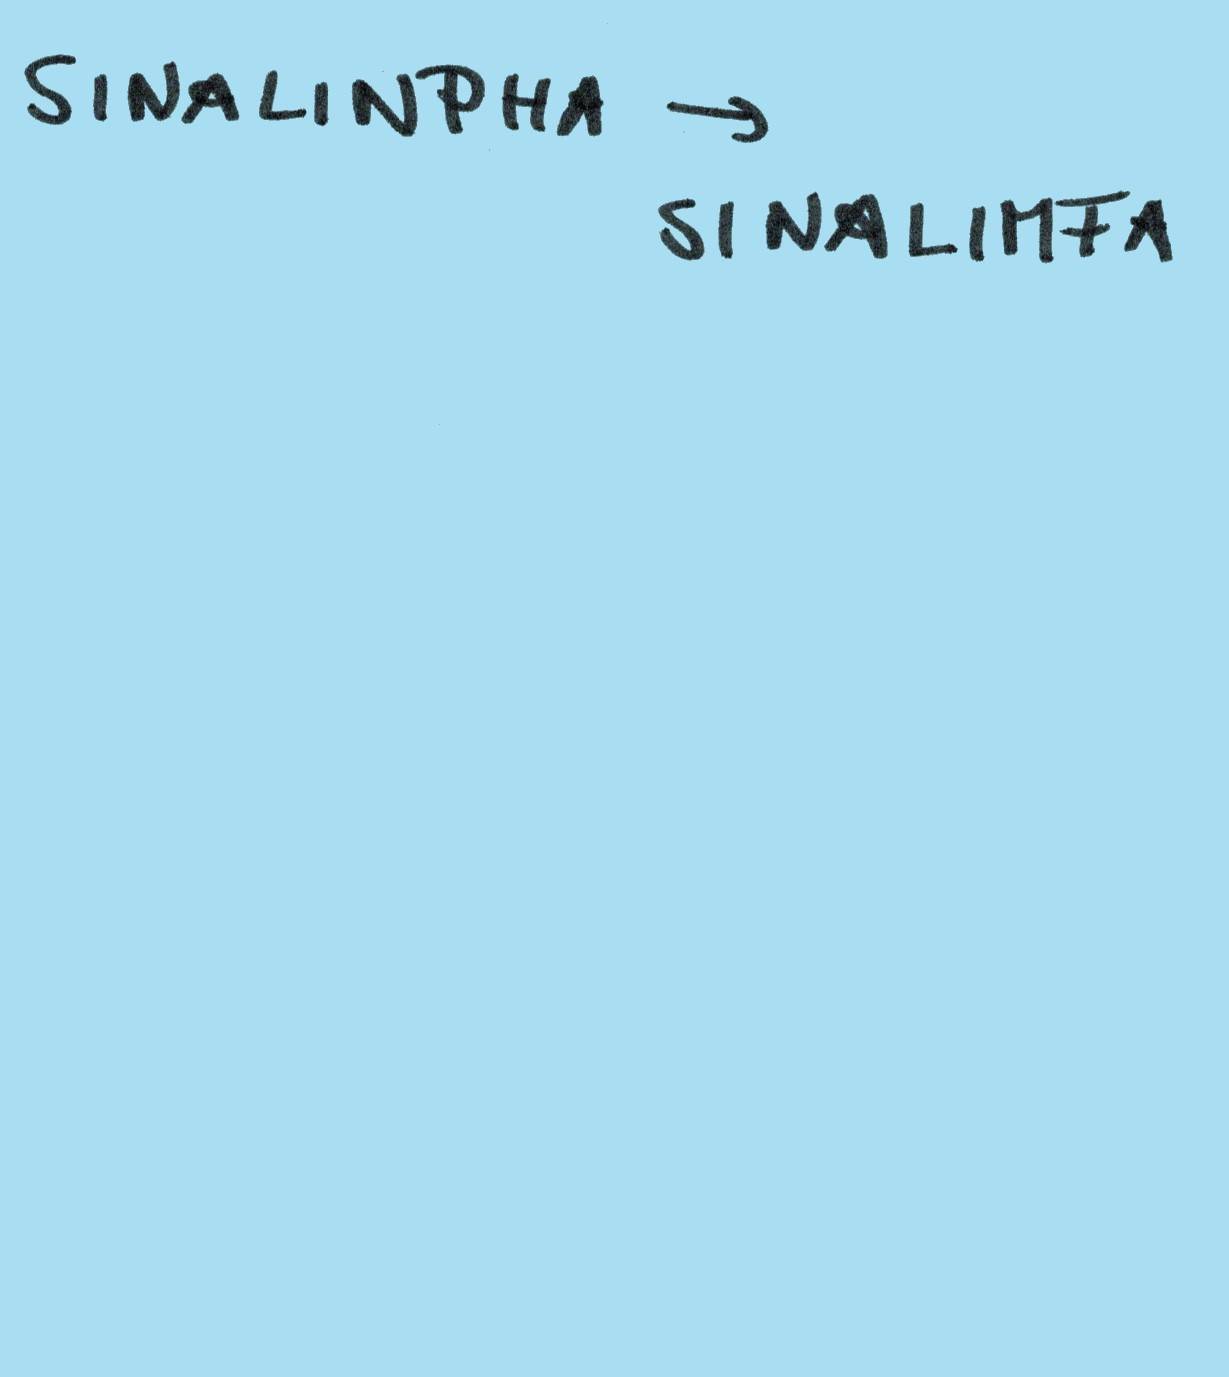 SINALINPHA →
SINALIMFA